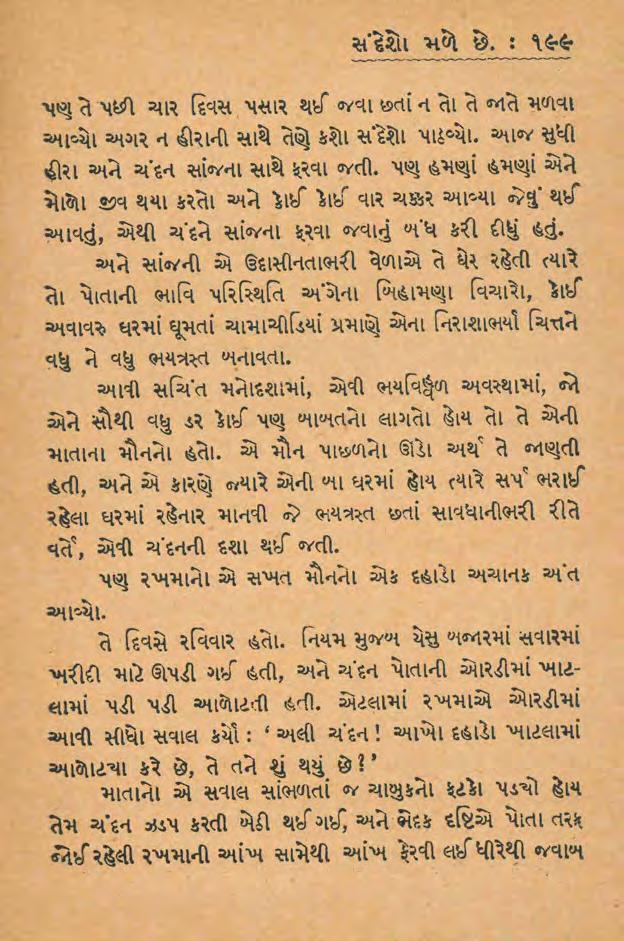 સંદેશો મળે છે. : ૧૯૯
પણ તે પછી ચાર દિવસ પસાર થઈ જવા છતાં ન તો તે જાતે મળવા
આવ્યો અગર ન હીરાની સાથે તેણે કશો સંદેશો પાઠવ્યો. આજ સુધી
હીરા અને ચંદન સાંજના સાથે ફરવા જતી. પણ હમણાં હમણાં એને
મોળો જીવ થયા કરતો અને કોઈ કોઈ વાર ચક્કર આવ્યા જેવું થઈ
આવતું, એથી ચંદને સાંજના ફરવા જવાનું બંધ કરી દીધું હતું.
અને સાંજની એ ઉદાસીનતાભરી વેળાએ તે ઘેર રહેતી ત્યારે
તો પોતાની ભાવિ પરિસ્થિતિ અંગેના બિહામણા વિચારો, કોઈ
અવાવરુ ઘરમાં ઘૂમતાં ચામાચીડિયાં પ્રમાણે એના નિરાશાભર્યા ચિત્તને
વધુ ને વધુ ભયત્રસ્ત બનાવતા.
આવી સચિંત મનોદશામાં, એવી ભયવિહ્વળ અવસ્થામાં, જો
એને સૌથી વધુ ડર કોઈ પણ બાબતનો લાગતો હોય તો તે એની
માતાના મૌનનો હતો. એ મૌન પાછળનો ઊંડો અર્થ તે જાણતી
હતી, અને એ કારણે જ્યારે એની બા ઘરમાં હોય ત્યારે સર્પ ભરાઈ
રહેલા ઘરમાં રહેનાર માનવી જે ભયત્રસ્ત છતાં સાવધાનીભરી રીતે
વર્તે, એવી ચંદનની દશા થઈ જતી.
પણ રખમાનો એ સખત મૌનનો એક દહાડો અચાનક અંત
આવ્યો.
તે દિવસે રવિવાર હતો. નિયમ મુજબ યેસુ બજારમાં સવારમાં
ખરીદી માટે ઊપડી ગઈ હતી, અને ચંદન પોતાની ઓરડીમાં ખાટ-
લામાં પડી પડી આળોટતી હતી. એટલામાં રખમાએ ઓરડીમાં
આવી સીધો સવાલ કર્યો : ‘ અલી ચંદન ! આખો દહાડો ખાટલામાં
આળોટ્યા કરે છે, તે તને શું થયું છે?’
માતાનો એ સવાલ સાંભળતાં જ ચાબુકનો ફટકો પડ્યો હોય
તેમ ચંદન ઝડપ કરતી બેઠી થઈ ગઈ, અને ભેદક દૃષ્ટિએ પોતા તરફ
જોઈ રહેલી રખમાની આંખ સામેથી આંખ ફેરવી લઈ ધીરેથી જવાબ